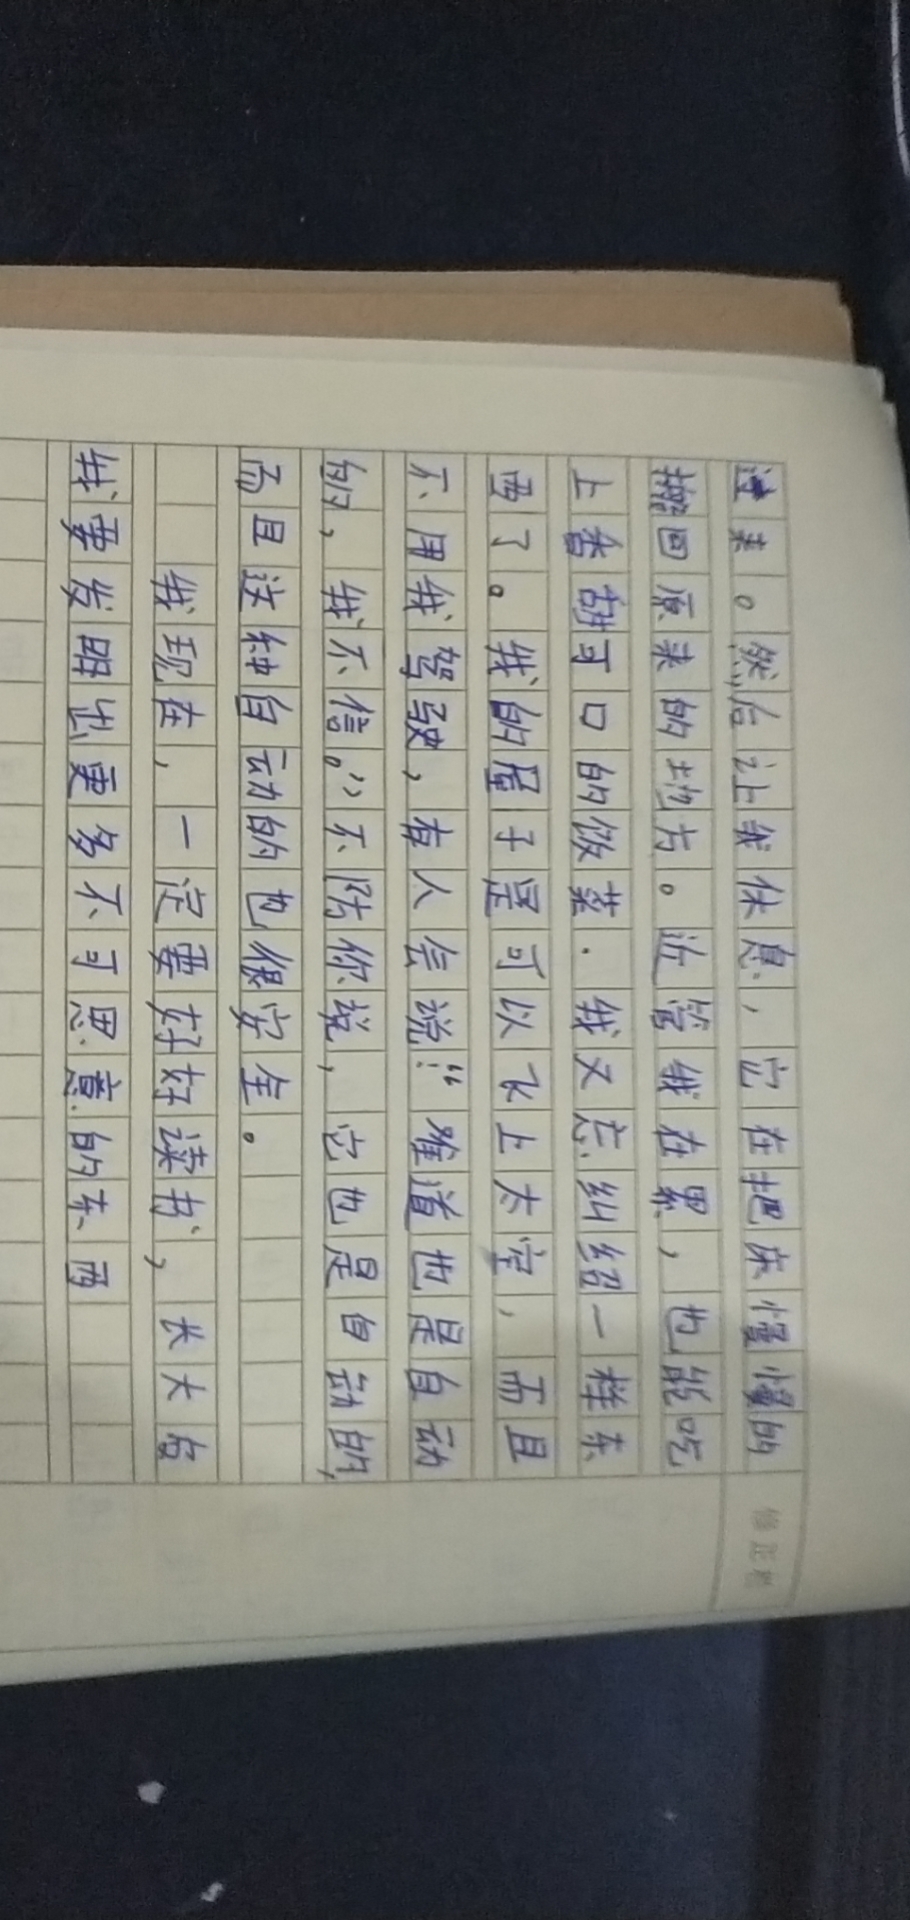 过来。然后让我休息，它在把床慢慢的
搬回原来的地方。近管我在累，也能吃
上香甜可口的饭菜.我又忘纠绍一样东
西了。我的屋子是可以飞上太空，而且
不用我驾驶，有人会说:“难道也是自动
的，我不信。”不防你说，它也是自动的，
而且这种自动的也很安全。
我现在，一定要好好读书，长大后
我要发明出更多不可思意的东西
修正栏